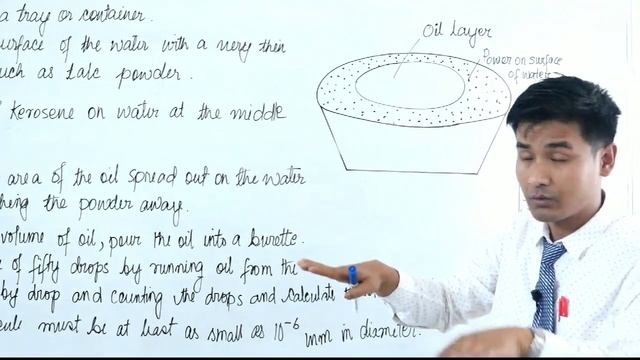 a tray or container.
surface of the water with a very thin
such as talc powder.
kerosene on water at the middle
area of the oil spread out on the water
the powder away.
volume of oil, pour the oil into a burette.
of fifty drops by running oil from the
by drop and counting the drops and calculate
must be at least as small as 10⁻⁶ mm in diameter.
Oil layer
Power on surface
of water